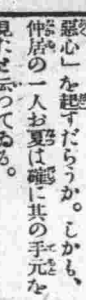 惡心」を起すだらうか。しかも、
仲居の一人お夏は確に其の手元を
見たと云つてゐる。